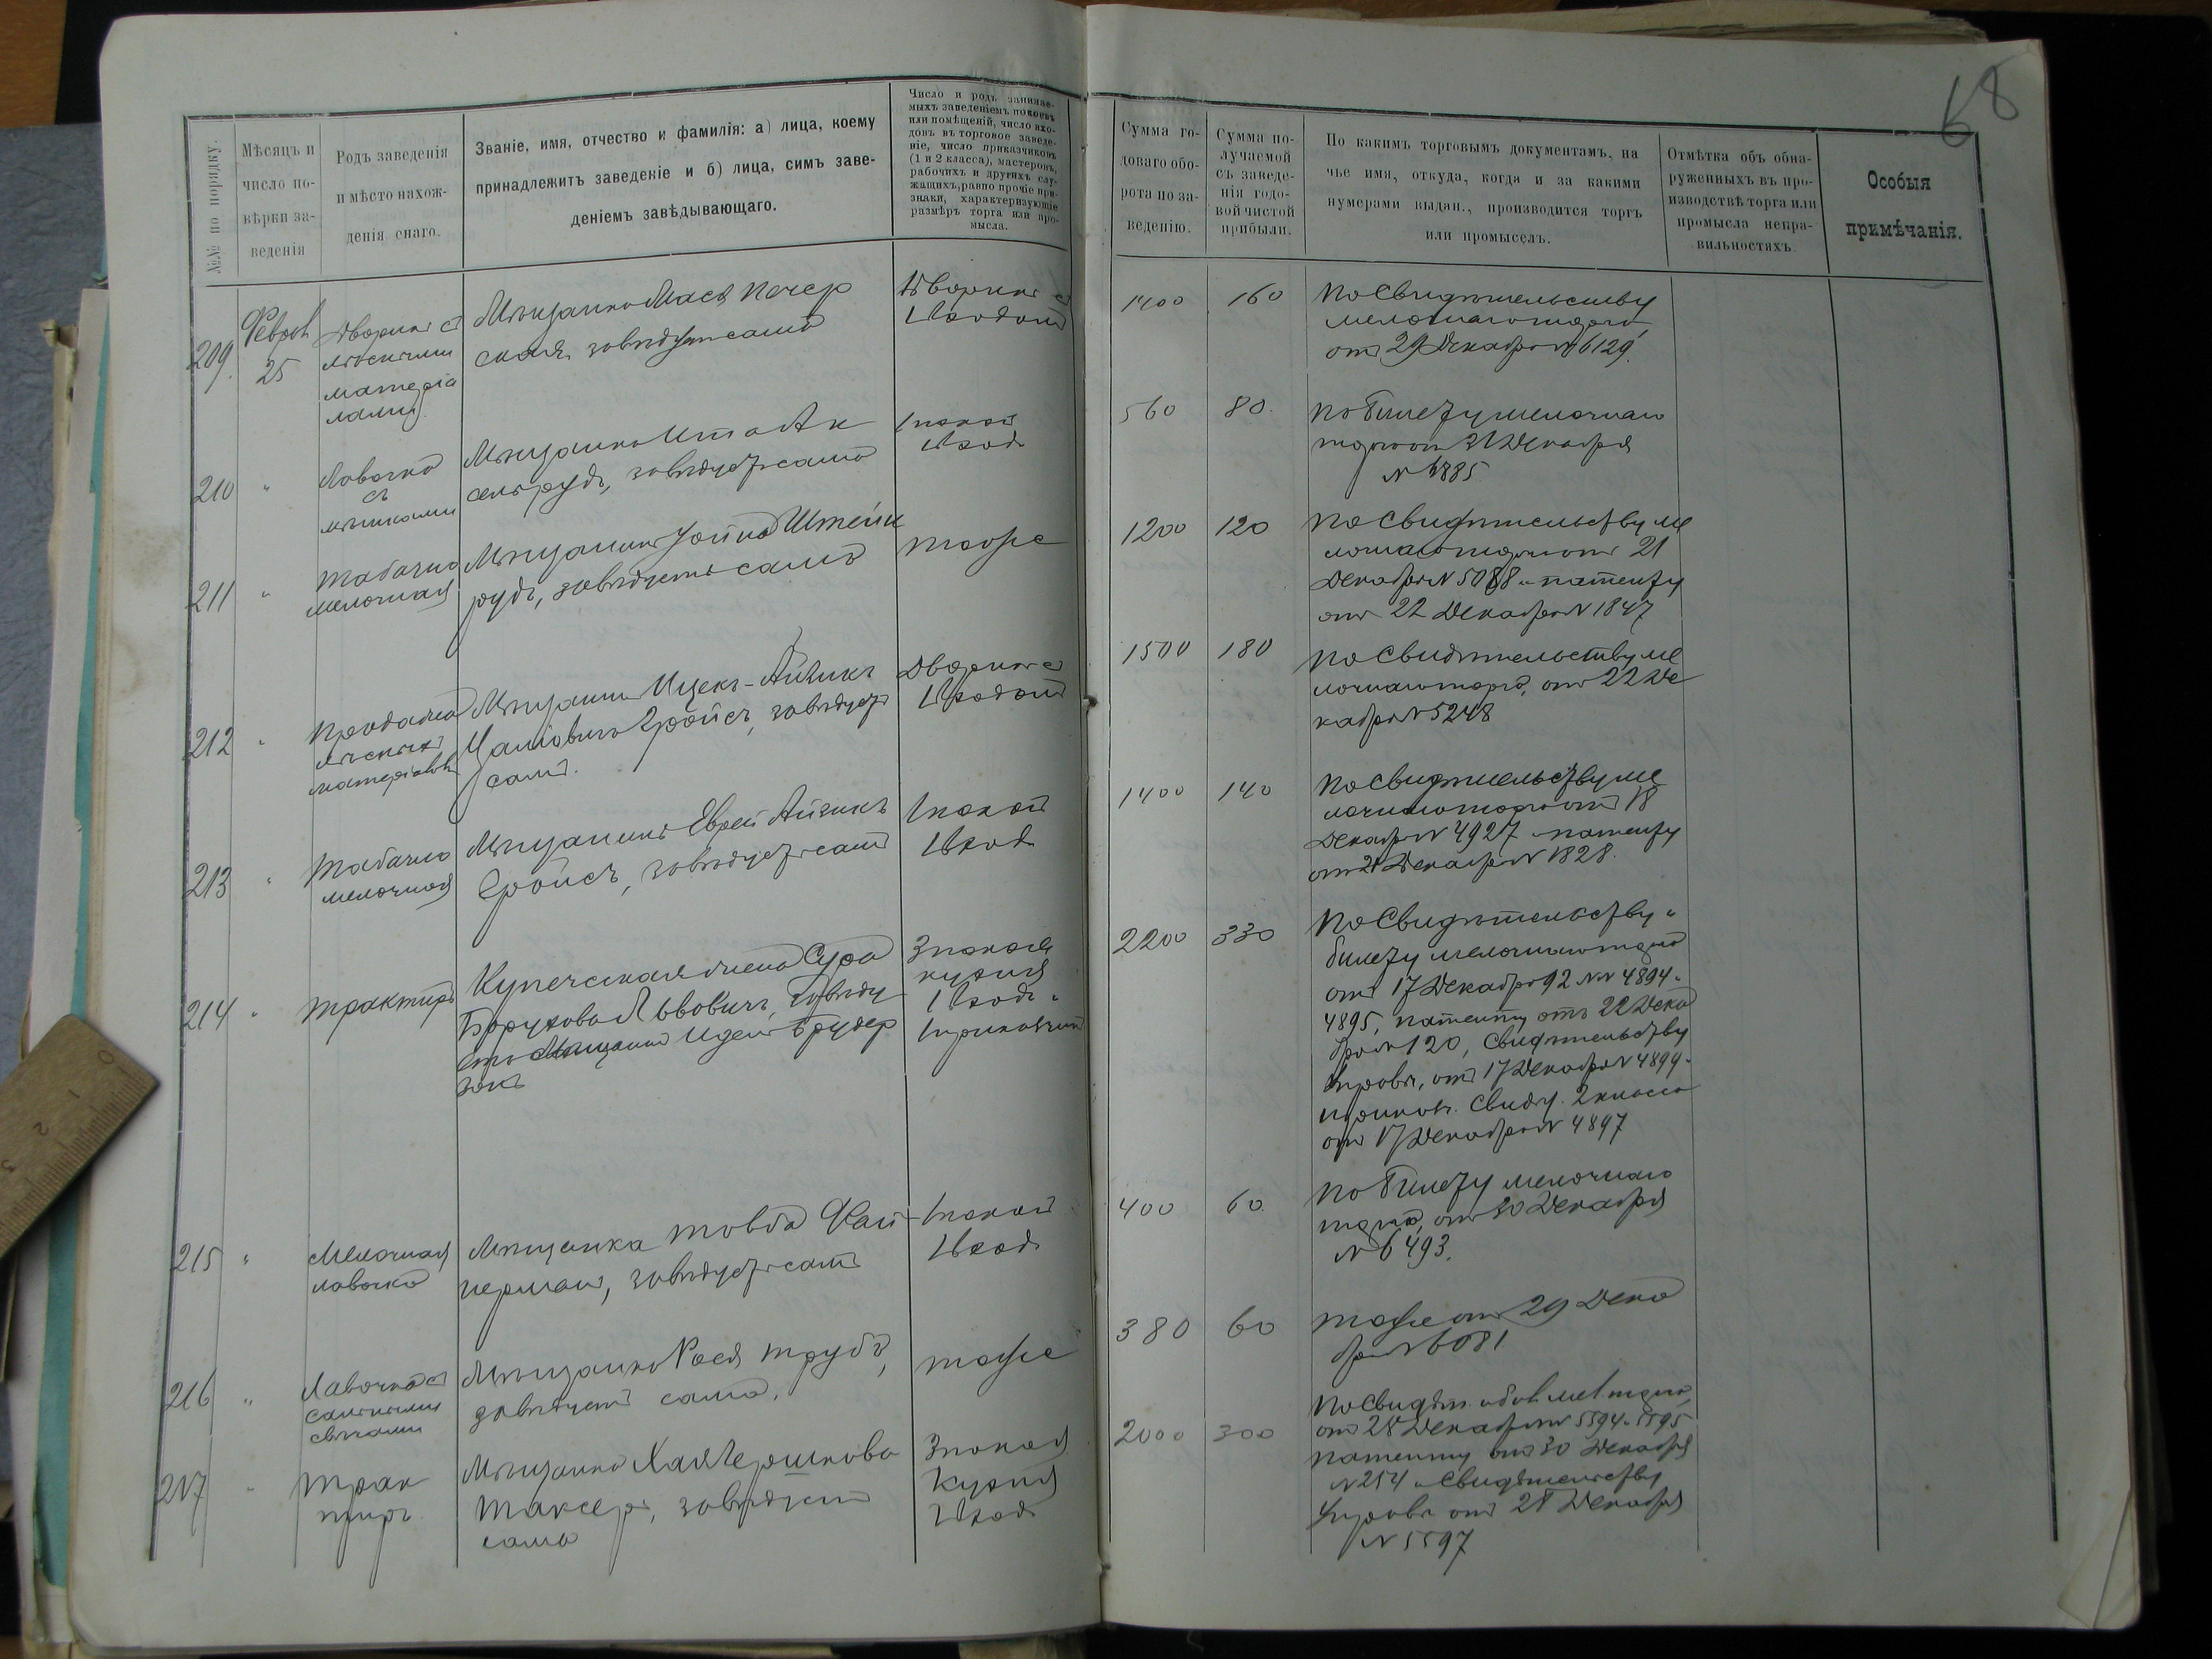 68
№№ по порядку.
Мѣсяцъ и
число по-
вѣрки за-
веденія
Родъ заведенія
и мѣсто нахож-
денія онаго.
Званіе, имя, отчество и фамилія: а) лица, коему
принадлежитъ заведеніе и б) лица, симъ заве-
деніемъ завѣдывающаго.
Число и родъ занимае-
мыхъ заведеніемъ покоевъ
или помѣщеній, число вхо-
довъ въ торговое заведе-
ніе, число приказчиковъ
(1 и 2 класса), мастеровъ,
рабочихъ и другихъ слу-
жащихъ, равно прочіе при-
знаки, характеризующіе
размѣръ торга или про-
мысла.
Сумма го-
доваго обо-
рота по за-
веденію.
Сумма по-
лучаемой
съ заведе-
нія годо-
вой чистой
прибыли.
По какимъ торговымъ документамъ, на
чье имя, откуда, когда и за какими
нумерами выдан., производится торгъ
или промыселъ.
Отмѣтка объ обна-
руженныхъ въ про-
изводствѣ торга или
промысла непра-
вильностяхъ.
Особыя
примѣчанія.
209.
Феврал
25
Дворикъ съ
лѣсными
матеріа
лами
Мѣщанка Мася Печер
ская, завѣдуетъ сама
Дворикъ съ
1 входомъ
1400
160
По Свидѣтельству
мелочнаго торга,
отъ 29 Декабря № 6129.
210
"
Лавочка
съ
мѣшками
Мѣщанка Ита Ак
сельрудъ, завѣдуетъ сама
1 покой
1 входъ
560
80
По билету мелочнаго
торга отъ 31 Декабря
№ 6885
211
"
Табачно
мелочная
Мѣщанинъ Іойна Штейн
рудъ, завѣдуетъ самъ
тоже
1200
120
По Свидѣтельству ме
лочнаго торга отъ 21
Декабря № 5088 и патенту
отъ 22 Декабря № 1847
212
"
Продажа
лѣсныхъ
матеріаловъ
Мѣщанинъ Ицекъ-Айзикъ
Гройсъ, завѣдуетъ
самъ.
Дворикъ съ
1 входомъ
1500
180
По Свидѣтельству ме
лочнаго торга, отъ 22 Де
кабря № 5248
213
"
Табачно
мелочная
Мѣщанинъ Еврей Айзикъ
Гройсъ, завѣдуетъ самъ
1 покой
1 входъ
1400
140
По Свидѣтельству ме
лочнаго торга отъ 18
Декабря № 4927 и патенту
отъ 21 Декабря № 1828.
214
"
Трактиръ
Купеческая жена Сура
Борухова Львовичъ, завѣду
етъ мѣщанинъ Идель Брудер
зонъ
3 покоя
кухня
1 входъ и
1 прикащикъ
2200
330
По Свидѣтельству и
билету мелочнаго торга
отъ 17 Декабря 92 №№ 4894 и
4895, патенту отъ 22 Дека
бря № 120, Свидѣтельству
Управы, отъ 17 Декабря № 4899 и
приказ. Свидѣ. 2 класса
отъ 17 Декабря № 4897
215
"
Мелочная
лавочка
Мѣщанка Товба Фай
германъ, завѣдуетъ сама
1 покой
1 входъ
400
60.
По билету мелочнаго
торга, отъ 30 Декабря
№ 6493.
216
"
Лавочка съ
сальными
свѣчами
Мѣщанка Рося Трубъ,
завѣдуетъ сама.
тоже
380
60
тоже отъ 29 Дека
бря № 6081
217
"
Трак
тиръ.
Мѣщанка Хая Гершкова
Таксеръ, завѣдуетъ
сама
3 покоя
Кухня
1 входъ
2000
300
По Свидѣт. и бил. мел. торга,
отъ 28 Декабря №№ 5594 и 5595
патенту отъ 30 Декабря
№ 254 и Свидѣтельству
Управы отъ 28 Декабря
№ 5597